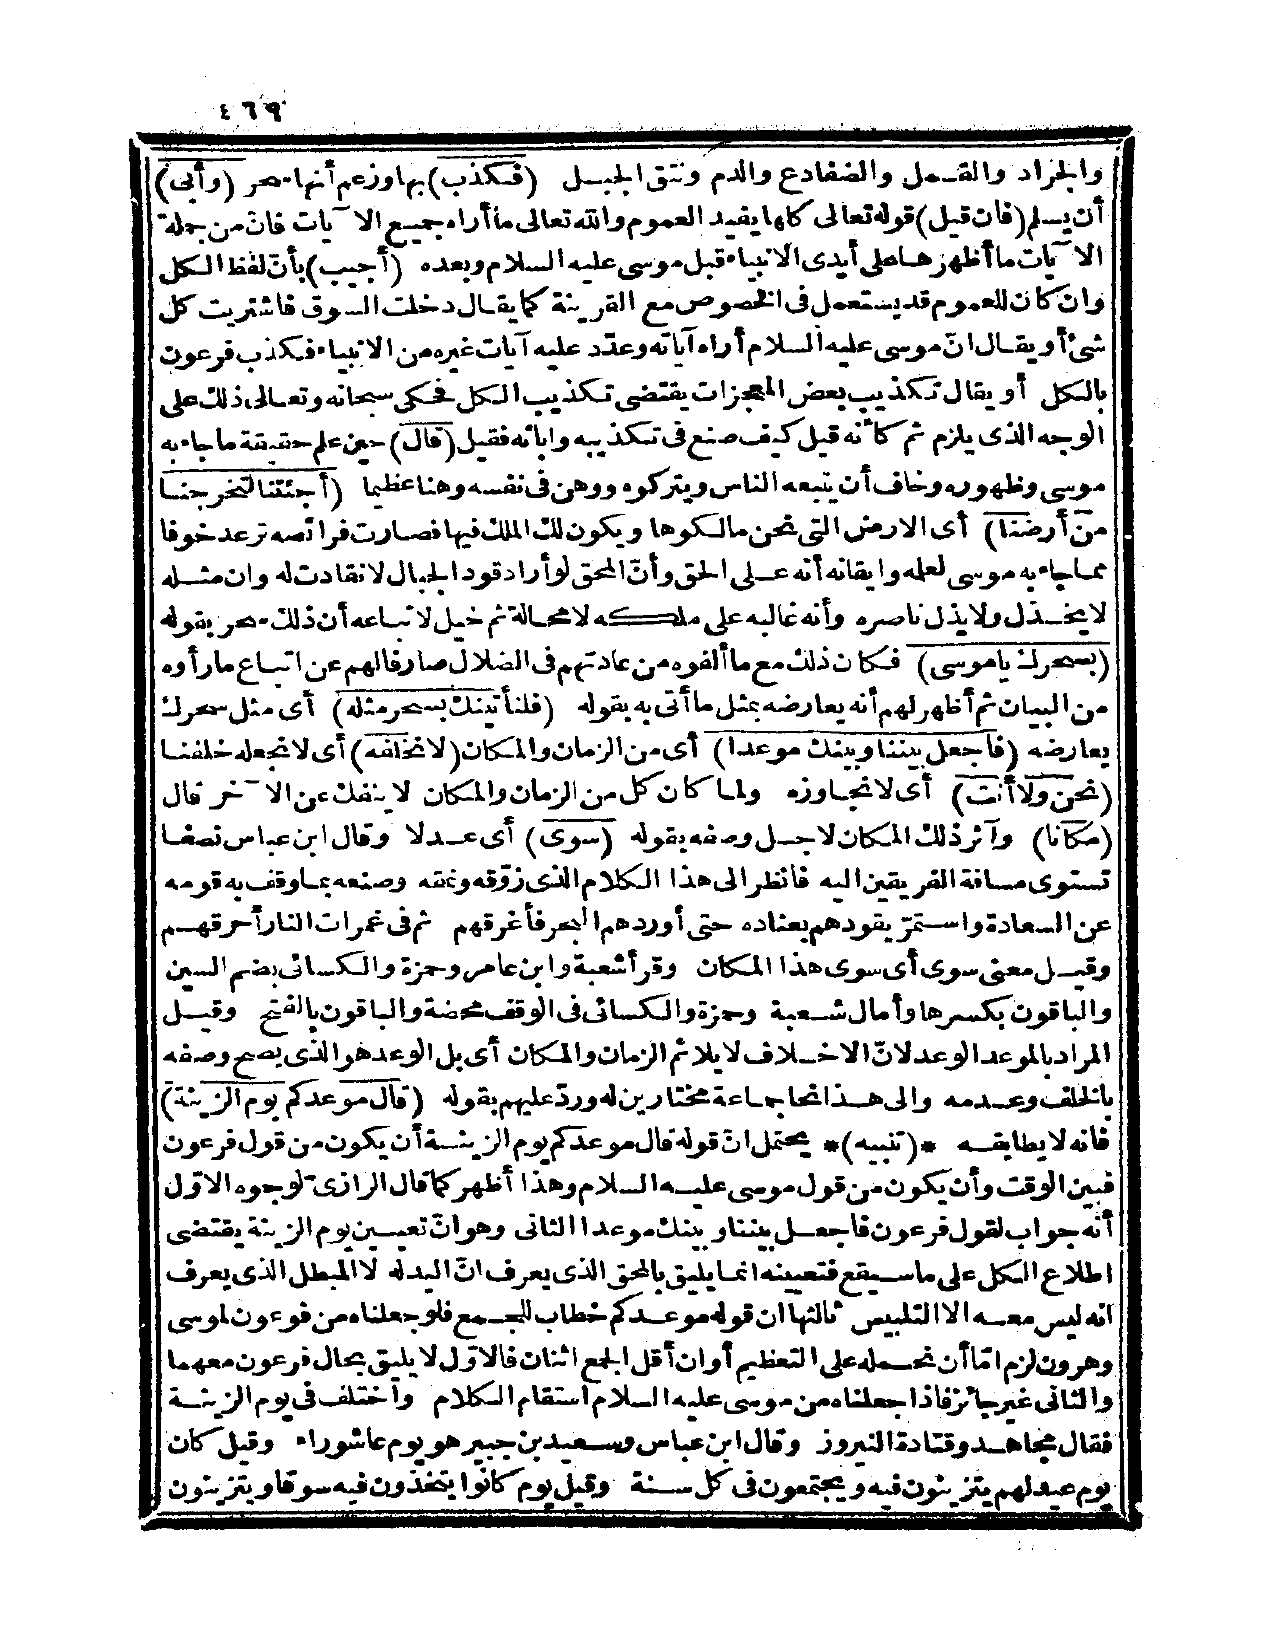 ٤٦٩
والجراد والقمل والضفادع والدم ونتق الجبل (فكذب) بها وزعم أنها سحر (وأبى)
أن يسلم (فان قيل) قوله تعالى كلها يفيد العموم والله تعالى ما أراه جميع الآيات فان من جملة
الآيات ما أظهرها على أيدى الانبياء قبل موسى عليه السلام وبعده (أجيب) بأنّ لفظ الكل
وان كان للعموم قد يستعمل فى الخصوص مع القرينة كما يقال دخلت السوق فاشتريت كل
شئ أو يقال انّ موسى عليه السلام أراه آياته وعدد عليه آيات غيره من الانبياء فكذب فرعون
بالكل أو يقال تكذيب بعض المعجزات يقتضى تكذيب الكل فحكى سبحانه وتعالى ذلك على
الوجه الذى يلزم ثم كأنه قيل كيف صنع فى تكذيبه وابائه فقيل (قال) حين علم حقيقة ما جاء به
موسى وظهوره وخاف أن يتبعه الناس ويتركوه ووهن فى نفسه وهنا عظيما (أجئتنا لتخرجنا
من أرضنا) أى الارض التى نحن مالكوها ويكون لك الملك فيها فصارت فرائصه ترعد خوفا
مما جاء به موسى لعله وايقانه أنه على الحق وأنّ المحق لو أراد قود الجبال لانقادت له وان مثله
لا يخذل ولا يذل ناصره وأنه غالبه على ملكه لا محالة ثم خيل لاتباعه أن ذلك سحر بقوله
(بسحرك ياموسى) فكان ذلك مع ما ألفوه من عادتهم فى الضلال صارفا لهم عن اتباع ما رأوه
من البيان ثم أظهر لهم أنه يعارضه بمثل ما أتى به بقوله (فلنأتينك بسحر مثله) أى مثل سحرك
يعارضه (فاجعل بيننا وبينك موعدا) أى من الزمان والمكان (لا نخلفه) أى لا نجعله خلفنا
(نحن ولا أنت) أى لا نتجاوزه ولما كان كل من الزمان والمكان لا ينفك عن الآخر قال
(مكانا) وآثر ذلك المكان لاجل وصفه بقوله (سوى) أى عدلا وقال ابن عباس نصفا
تستوى مسافة الفريقين اليه فانظر الى هذا الكلام الذى زوّقه ونمقه وصنعه بما وقف به قومه
عن السعادة واستمرّ يقودهم بعناده حتى أوردهم البحر فأغرقهم ثم فى غمرات النار أحرقهم
وقيل معنى سوى أى سوى هذا المكان وقرأ شعبة وابن عامر وحمزة والكسائى بضم السين
والباقون بكسرها وأمال شعبة وحمزة والكسائى فى الوقف محضة والباقون بالفتح وقيل
المراد بالموعد الوعد لانّ الاخلاف لا يلائم الزمان والمكان أى بل الوعد هو الذى يصح وصفه
بالخلف وعدمه والى هذا نحا جماعة مختارين له وردّ عليهم بقوله (قال موعدكم يوم الزينة)
فانه لا يطابقه *(تنبيه)* يحتمل انّ قوله قال موعدكم يوم الزينة أن يكون من قول فرعون
فبين الوقت وأن يكون من قول موسى عليه السلام وهذا أظهر كما قال الرازى لوجوه الاوّل
أنه جواب لقول فرعون فاجعل بيننا وبينك موعدا الثانى وهو انّ تعيين يوم الزينة يقتضى
اطلاع الكل على ما سيقع فتعيينه انما يليق بالمحق الذى يعرف انّ اليد له لا المبطل الذى يعرف
انه ليس معه الا التلبيس ثالثها ان قوله موعدكم خطاب للجمع فلو جعلناه من فرعون لموسى
وهرون لزم امّا أن نحمله على التعظيم أو ان أقل الجمع اثنان فالاوّل لا يليق بحال فرعون معهما
والثانى غير جائز فاذا جعلناه من موسى عليه السلام استقام الكلام واختلف فى يوم الزينة
فقال مجاهد وقتادة النيروز وقال ابن عباس وسعيد بن جبير هو يوم عاشوراء وقيل كان
يوم عيد لهم يتزينون فيه ويجتمعون فى كل سنة وقيل يوم كانوا يتخذون فيه سوقا ويتزينون